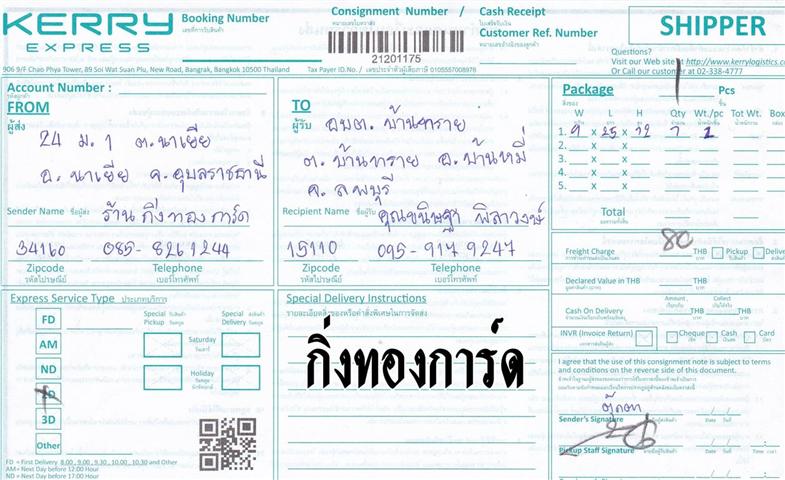 KERRY
EXPRESS
Booking Number
เลขที่การรับสินค้า
Consignment Number /
หมายเลขใบตราส่ง
21201175
Cash Receipt
ใบเสร็จรับเงิน
Customer Ref. Number
หมายเลขอ้างอิงของลูกค้า
SHIPPER
Questions?
Visit our Web site at http://www.kerrylogistics.c
Or Call our customer at 02-338-4777
906 9/F Chao Phya Tower, 89 Soi Wat Suan Plu, New Road, Bangrak, Bangkok 10500 Thailand
Tax Payer ID.No. / เลขประจำตัวผู้เสียภาษี 0105557008978
Account Number :
รหัสลูกค้า
FROM
ผู้ส่ง
24 ม.1 ต.นาเยีย
อ.นาเยีย จ.อุบลราชธานี
Sender Name ชื่อผู้ส่ง ร้าน กิ่งทอง การ์ด
34160 085-8261244
Zipcode Telephone
รหัสไปรษณีย์ เบอร์โทรศัพท์
TO
ผู้รับ อบต.บ้านทราย
ต.บ้านทราย อ.บ้านหมี่
จ.ลพบุรี
Recipient Name ชื่อผู้รับ คุณขนิษฐา พิลาวงษ์
15110 095-917 9247
Zipcode Telephone
รหัสไปรษณีย์ เบอร์โทรศัพท์
Package 1 Pcs
สิ่งของ ชิ้น
W L H Qty Wt./pc Tot Wt. Box
1. 9 x 25 x 12 1 1
2. x x
3. x x
4. x x
5. x x
Total
Freight Charge 80 THB Pickup Delive
Declared Value in THB THB
Cash On Delivery THB
Amount Collect
INVR (Invoice Return) Cheque Cash Card
I agree that the use of this consignment note is subject to terms
and conditions on the reverse side of this document.
ตุ๊กตา
Sender's Signature
Pickup Staff Signature
Express Service Type ประเภทบริการ
FD
AM
ND
2D
3D
Other
Special Pickup
Special Delivery
Saturday
วันเสาร์
Holiday
วันหยุด
นักขัตฤกษ์
FD = First Delivery 8.00, 9.00, 9.30, 10.00, 10.30 and Other
AM= Next Day before 12:00 Hour
ND = Next Day before 17:00 Hour
Special Delivery Instructions
กิ่งทองการ์ด